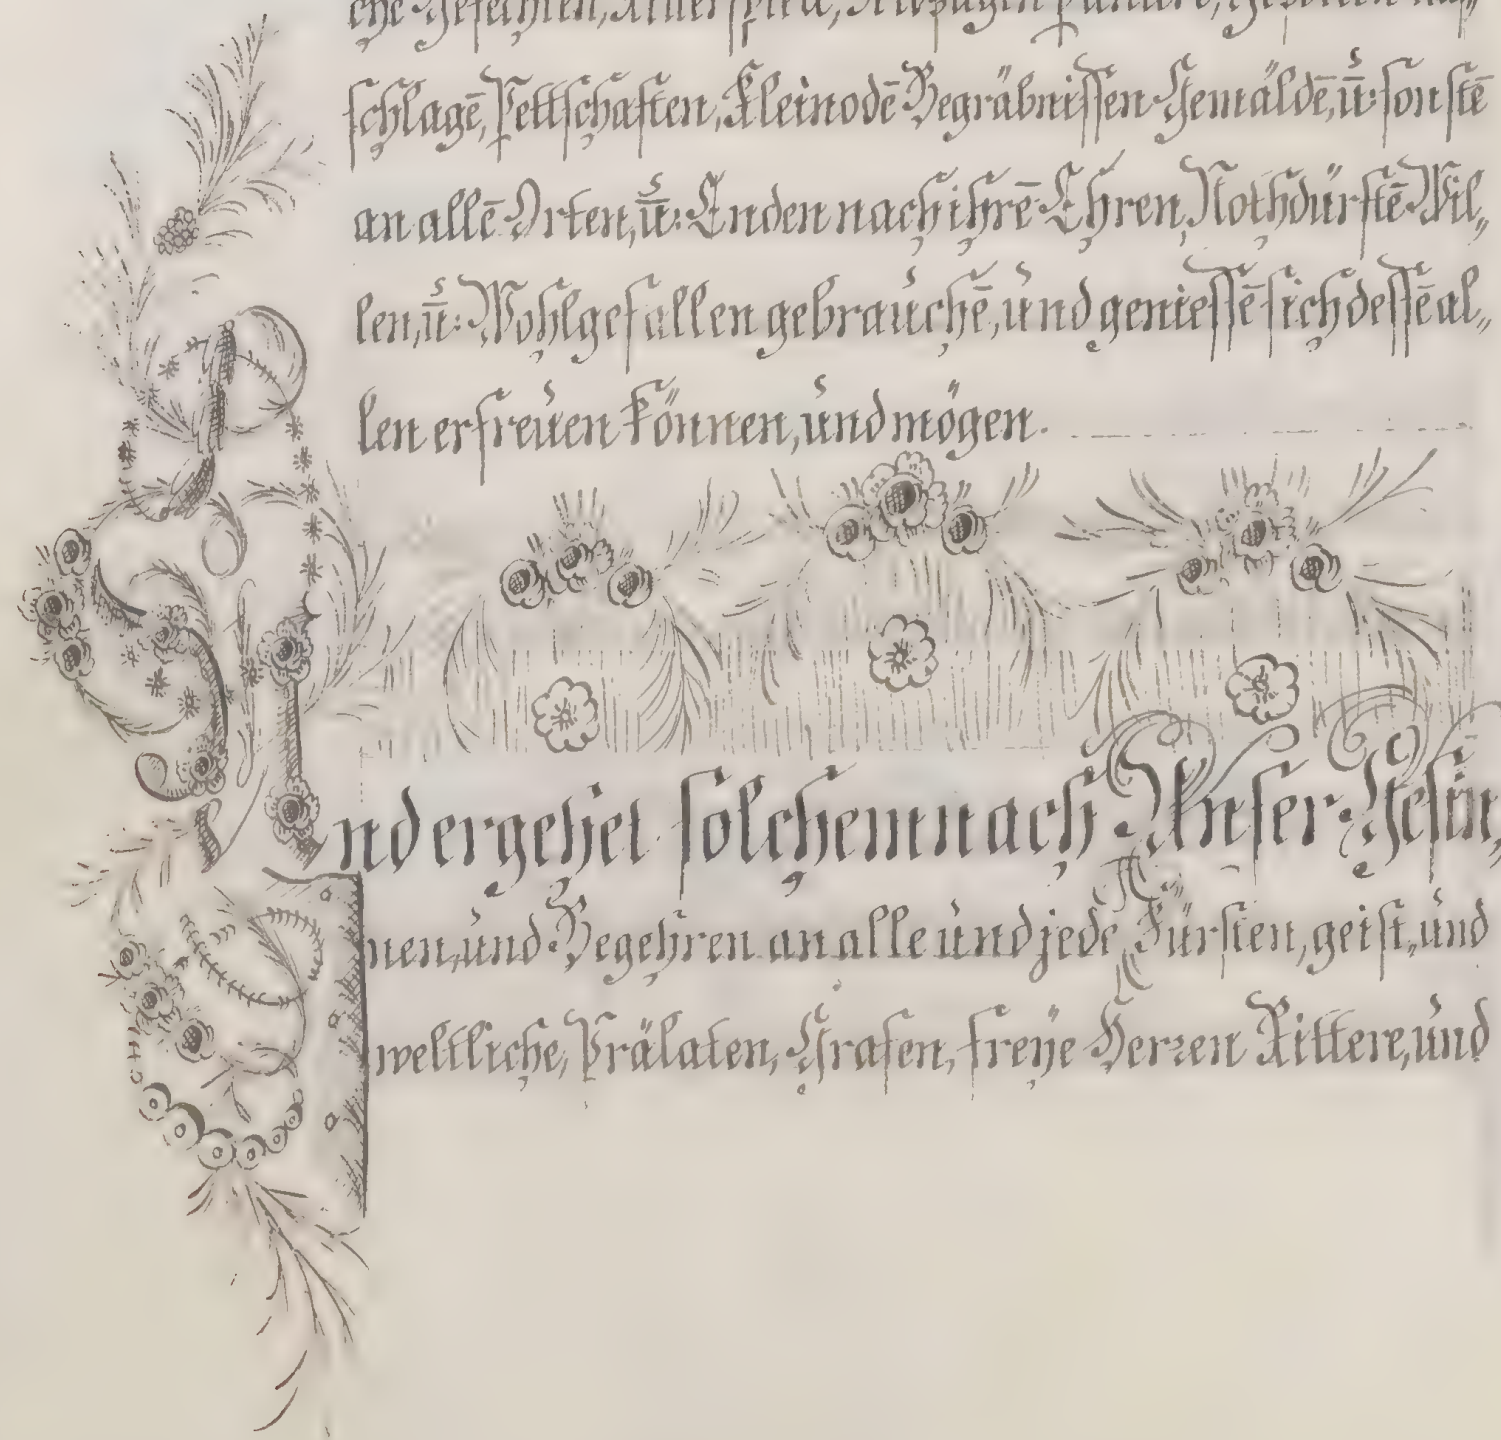 che Gefechten, Ritterspielē, Feldzügen Paniere, Gezelten auf„
schlagē, Pettschaften, Kleinodē Begräbnissen Gemäldē, ū: sonstē
an allē Orten, ū: Enden nach ihrē Ehren, Nothdürftē Wil„
len, ū: Wohlgefallen gebrauchē, und geniessē sich dessē al„
len erfreuen können, und mögen.
Und ergehet solchemnach Unser Gesin„
nen, und Begehren an alle und jede Fürsten, geist„ und
weltliche, Prälaten, Grafen, freye Herren Rittere, und